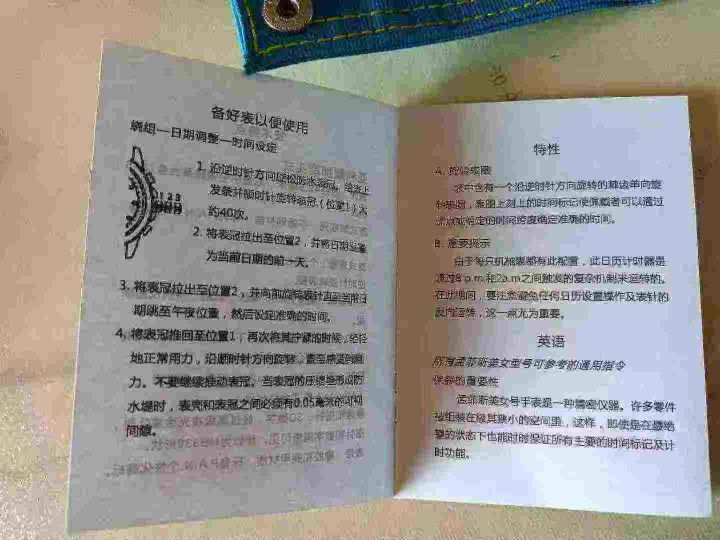 备好表以便使用
绕组—日期调整—时间设定
1 2 3
1. 沿逆时针方向旋松防水表冠。给表上
发条并顺时针旋转表冠（位置1）大
约40次。
2. 将表冠拉出至位置2，并将日期设置
为当前日期的前一天。
3. 将表冠拉出至位置2，并向前旋转表针直至当前日
期跳至午夜位置，然后设定准确的时间。
4. 将表冠推回至位置1，再次将其拧紧的时候，轻轻
地正常用力，沿顺时针方向旋转，直至感受到阻
力。不要继续推动表冠。当表冠的压缩垫形成防
水堤时，表壳和表冠之间必须有0.05毫米的可视
间隙。
特性
A. 旋转表圈
这中含有一个沿逆时针方向旋转的棘齿单向旋
转表圈，表圈上刻上的时间标记使佩戴者可以通过
给定的时间跨度确定准确的时间。
B. 重要提示
由于每只机械表都有此配置，此日历计时器是
通过8 p.m.和2a.m之间触发的复杂机制来运转的。
在此期间，要注意避免任何日历设置操作及表针的
反向运转，这一点尤为重要。
英语
所有孟菲斯美女型号可参考的通用指令
保养的重要性
孟菲斯美女号手表是一种精密仪器。许多零件
被组装在极其狭小的空间里，这样，即使是在最绝
望的状态下也能时时保证所有主要的时间标记及计
时功能。